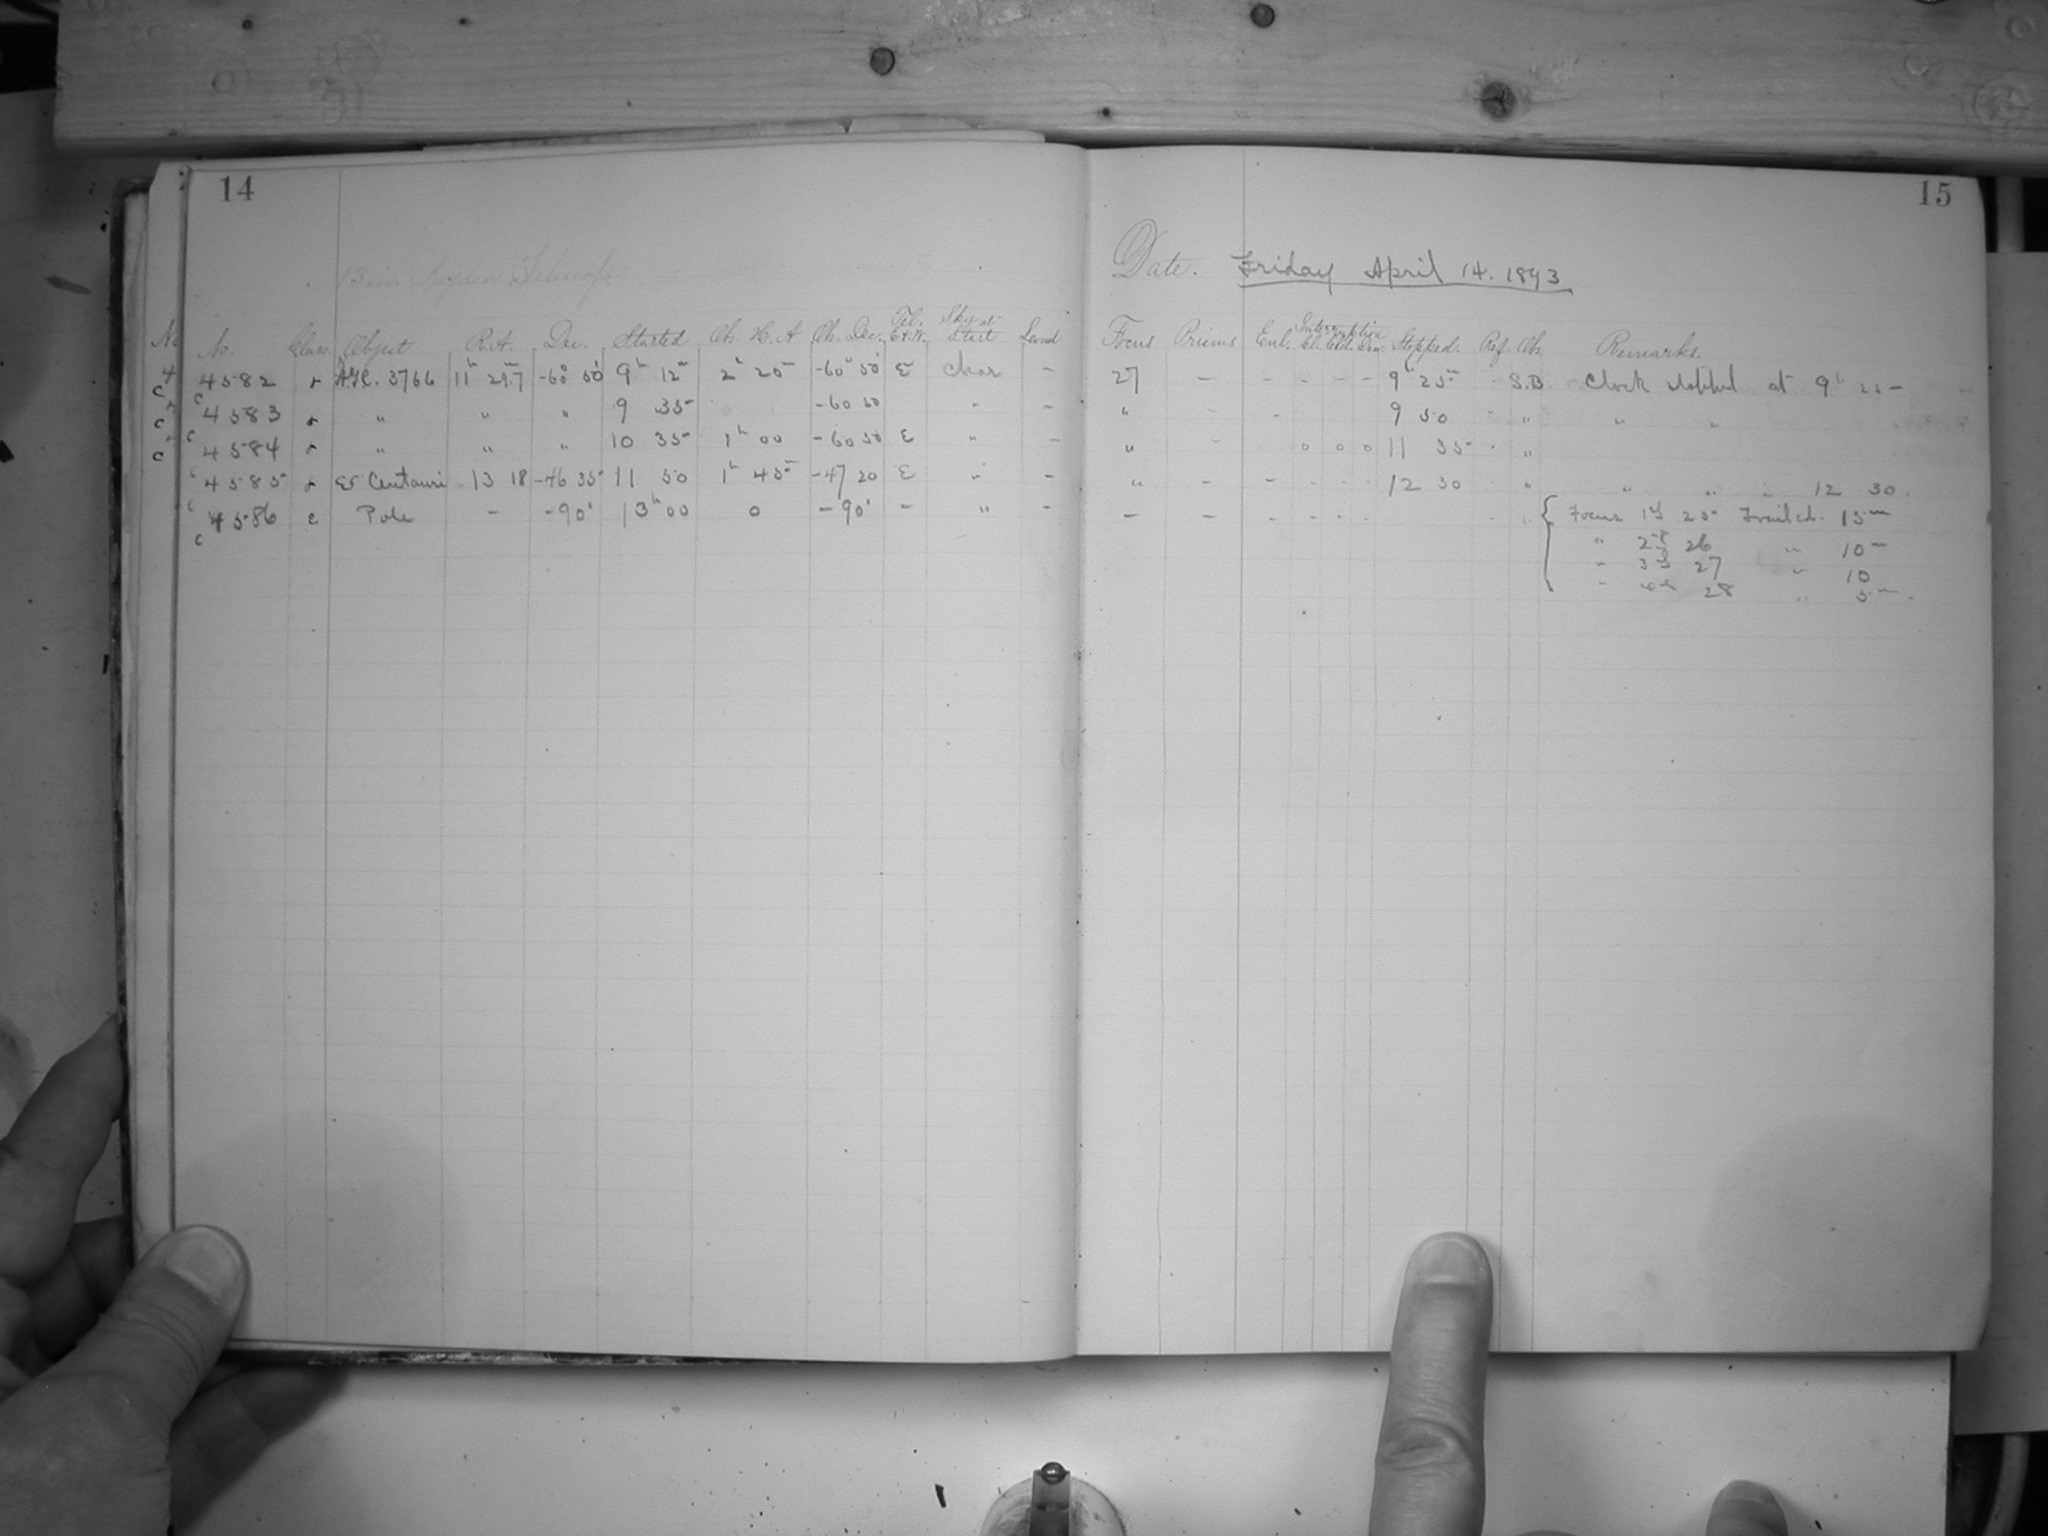 14
13 in. Boyden Telescope
No. Class. Object R.A. Dec. Started Ob. H. A Ob. Dec. Tel. E.+W. Sky at Start Level
4582 r 3766 11h 29.7m -60° 50' 9h 12m 2h 25m -60° 50' E clear -
4583 r " " " 9 35 -60 50 " -
4584 r " " " 10 35 1h 00 -60 50 E " -
4585 r Centauri 13 18 -46 35 11 50 1h 45m -47 20 E " -
4586 c Pole - -90° 13h 00 0 -90° - " -
15
Date. Friday April 14. 1893
Focus Prisms Enl. Interruption Cl. Stopped. Ref. Ob. Remarks.
27 - - - - - 9h 25m - S.B. Clock stopped at 9h 25m
" - - 9 50 " " "
" - 0 0 0 11 35 - "
" - - - - - 12 30 " " " " 12 30.
- - - - - - - " Focus 1st 25 Trailed. 15m
" 2d 26 " 10m
" 3d 27 " 10
" 4th 28 " 5m.